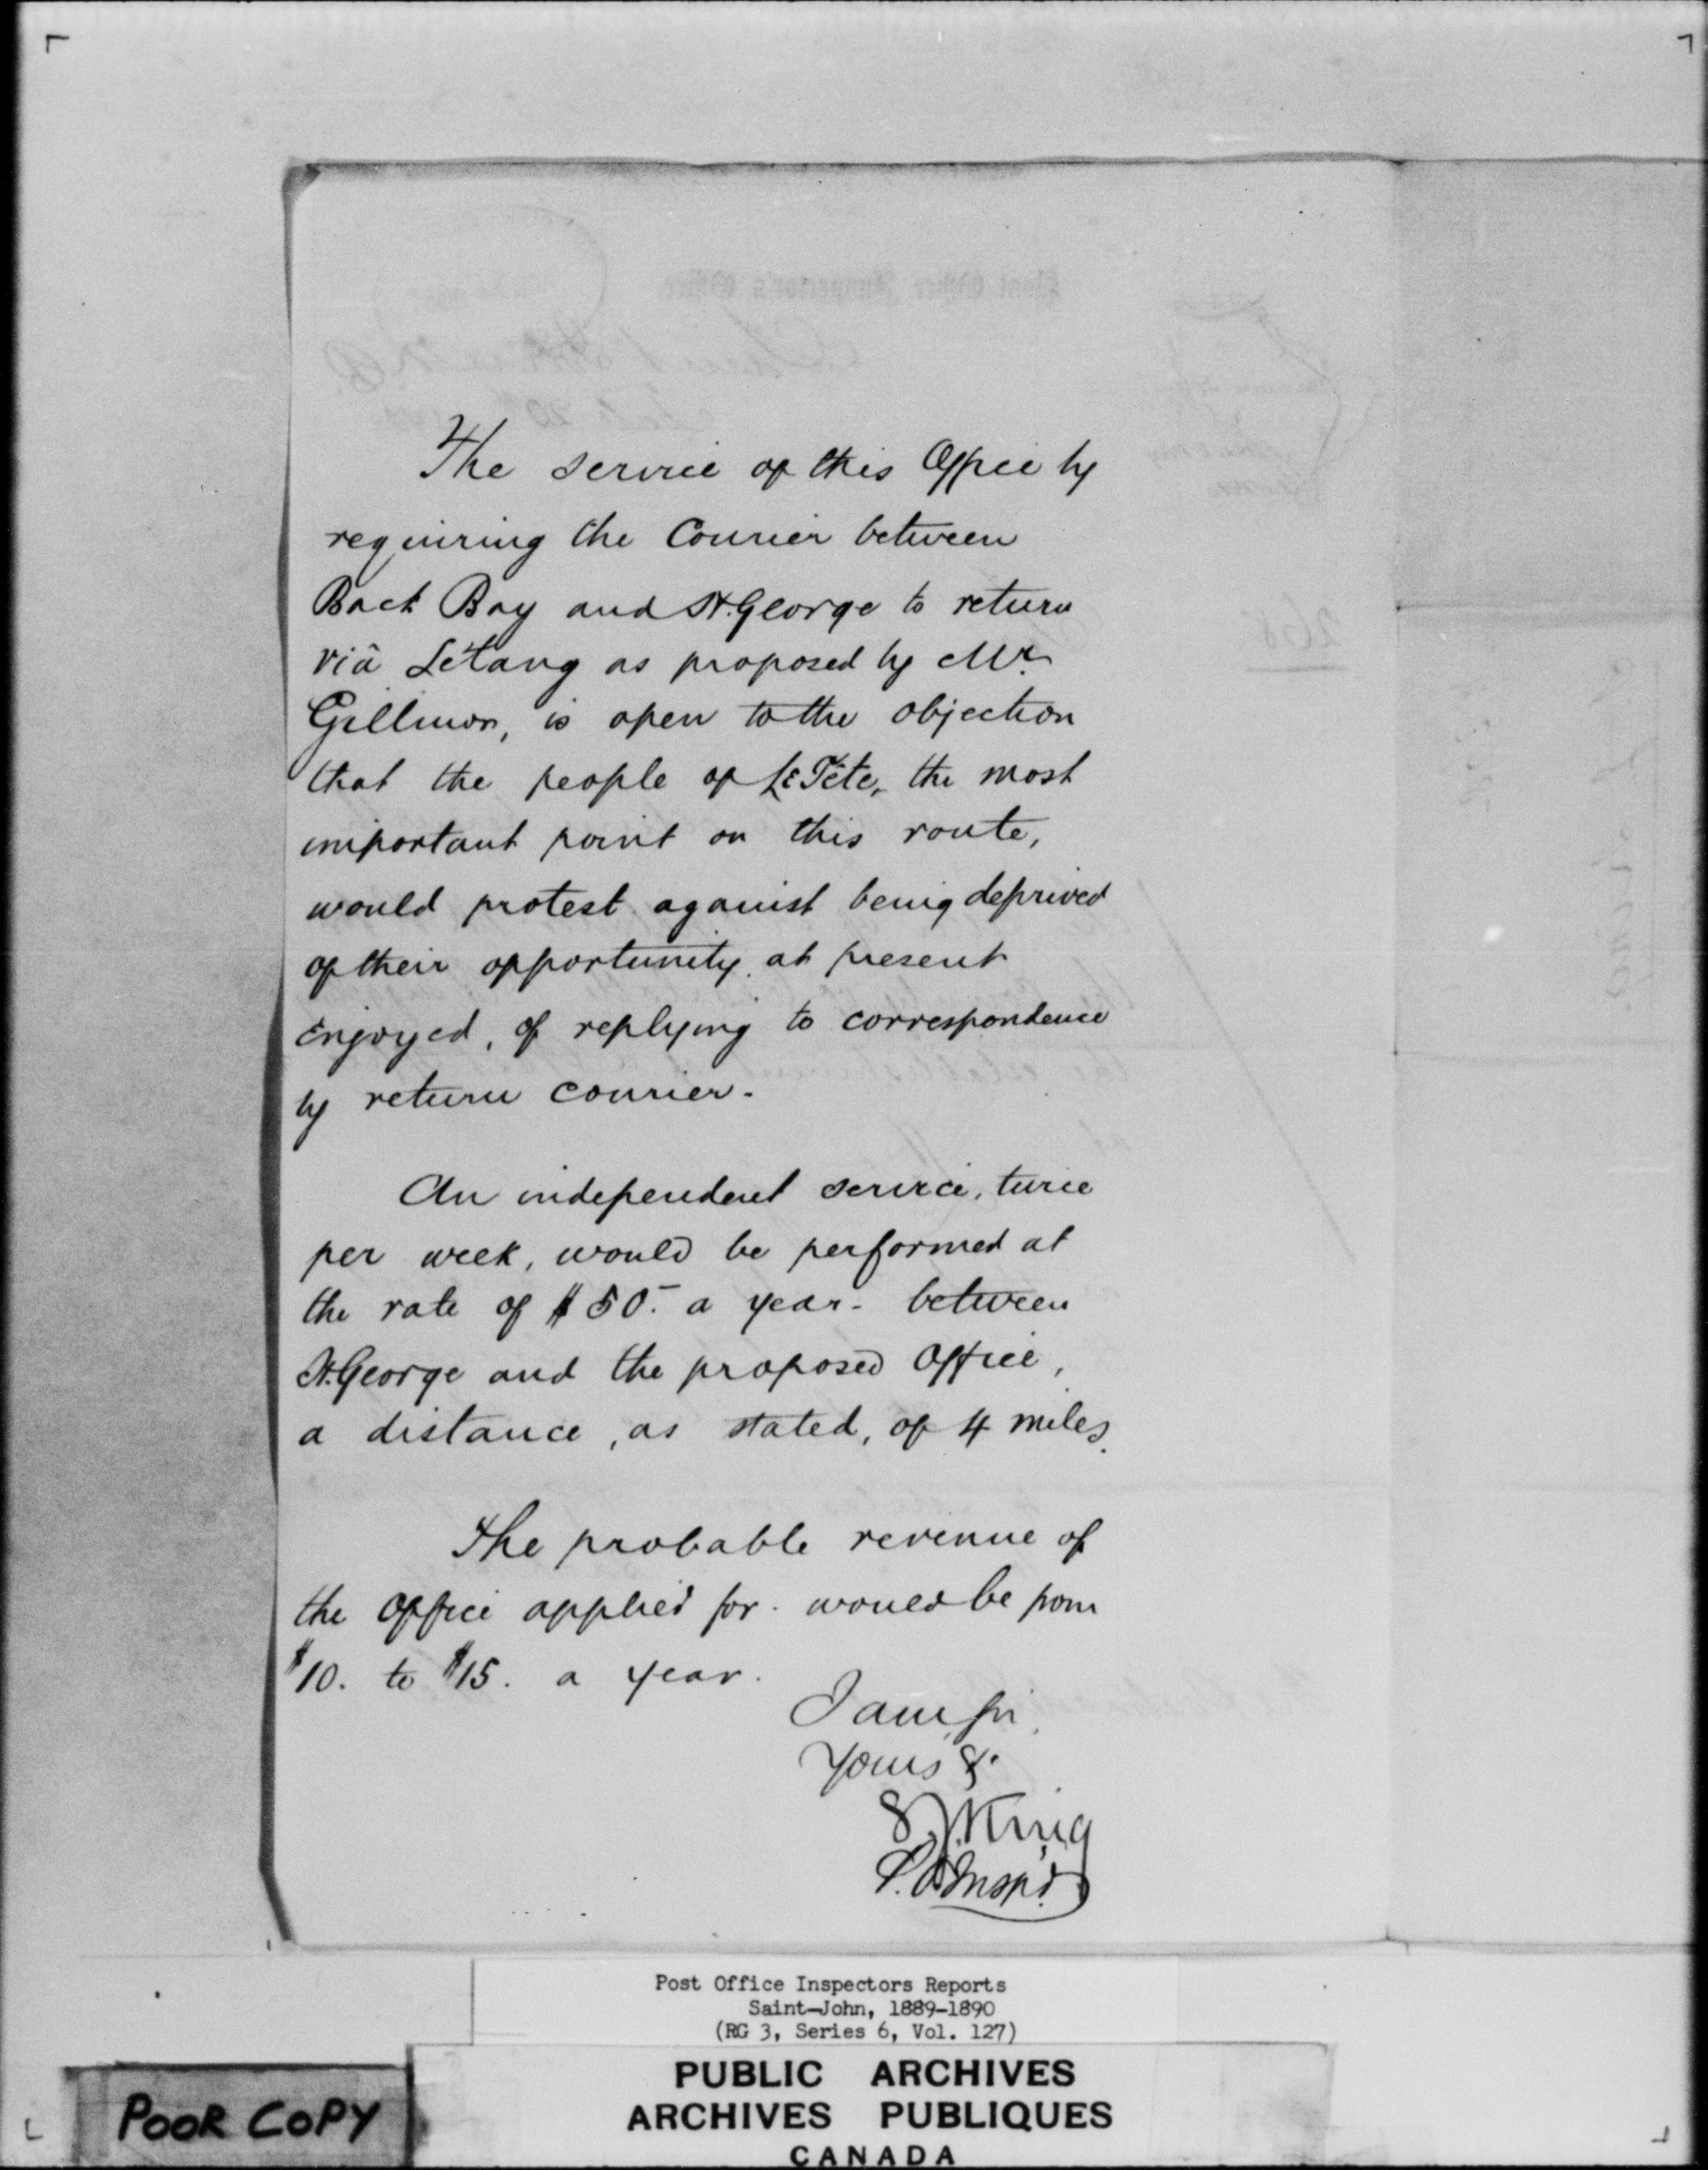 The service of this Office by
requiring the Courier between
Back Bay and St. George to return
viâ Letang as proposed by Mr.
Gillmor, is open to the objection
that the people of Le Tête, the most
important point on this route,
would protest against being deprived
of their opportunity, at present
enjoyed, of replying to correspondence
by return courier.
An independent service, twice
per week, would be performed at
the rate of $50.- a year - between
St. George and the proposed Office,
a distance, as stated, of 4 miles.
The probable revenue of
the Office applied for would be from
$10. to $15. a year.
I am Sir,
Yours &c
S. J. King
P.O. Inspr.
Post Office Inspectors Reports
Saint-John, 1889-1890
(RG 3, Series 6, Vol. 127)
PUBLIC ARCHIVES
ARCHIVES PUBLIQUES
CANADA
POOR COPY